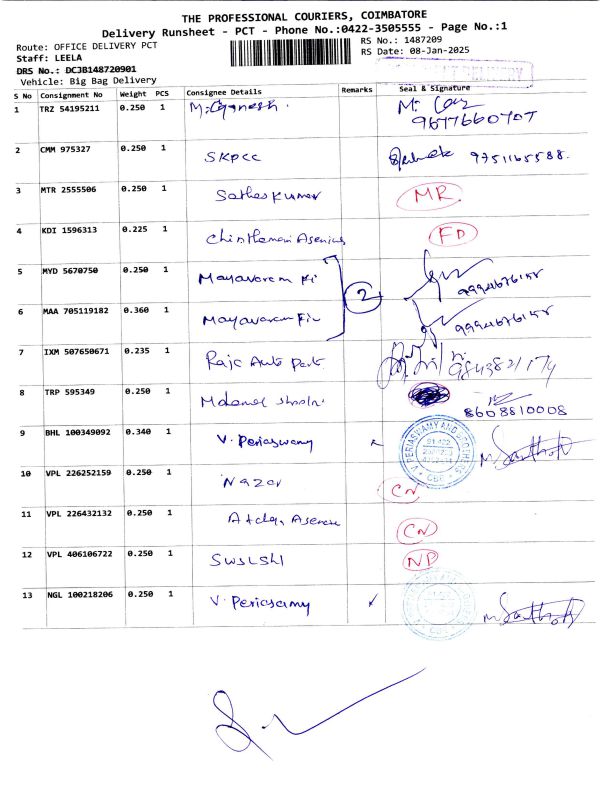 THE PROFESSIONAL COURIERS, COIMBATORE
Delivery Runsheet - PCT - Phone No.:0422-3505555 - Page No.:1
Route: OFFICE DELIVERY PCT
RS No.: 1487209
Staff: LEELA
RS Date: 08-Jan-2025
DRS No.: DCJB148720901
Vehicle: Big Bag Delivery
S No Consignment No Weight PCS Consignee Details Remarks Seal & Signature
1 TRZ 54195211 0.250 1 M. Ganesh. 9677660707
2 CMM 975327 0.250 1 SKPCC 9751165588.
3 MTR 2555506 0.250 1 Satheskumar MR
4 KDI 1596313 0.225 1 Chinthamani FD
5 MYD 5670750 0.250 1 Mayavaram Fi 9994676158
2
6 MAA 705119182 0.360 1 Mayavaram Fin 9994676158
7 IXM 507650671 0.235 1 Raja Auto Part 9843821174
8 TRP 595349 0.250 1 8608810008
9 BHL 100349092 0.340 1 V. Periaswamy V. PERIASWAMY AND BROTHERS CBE
10 VPL 226252159 0.250 1 Nazar CN
11 VPL 226432132 0.250 1 CN
12 VPL 406106722 0.250 1 NP
13 NGL 100218206 0.250 1 V. Periasamy